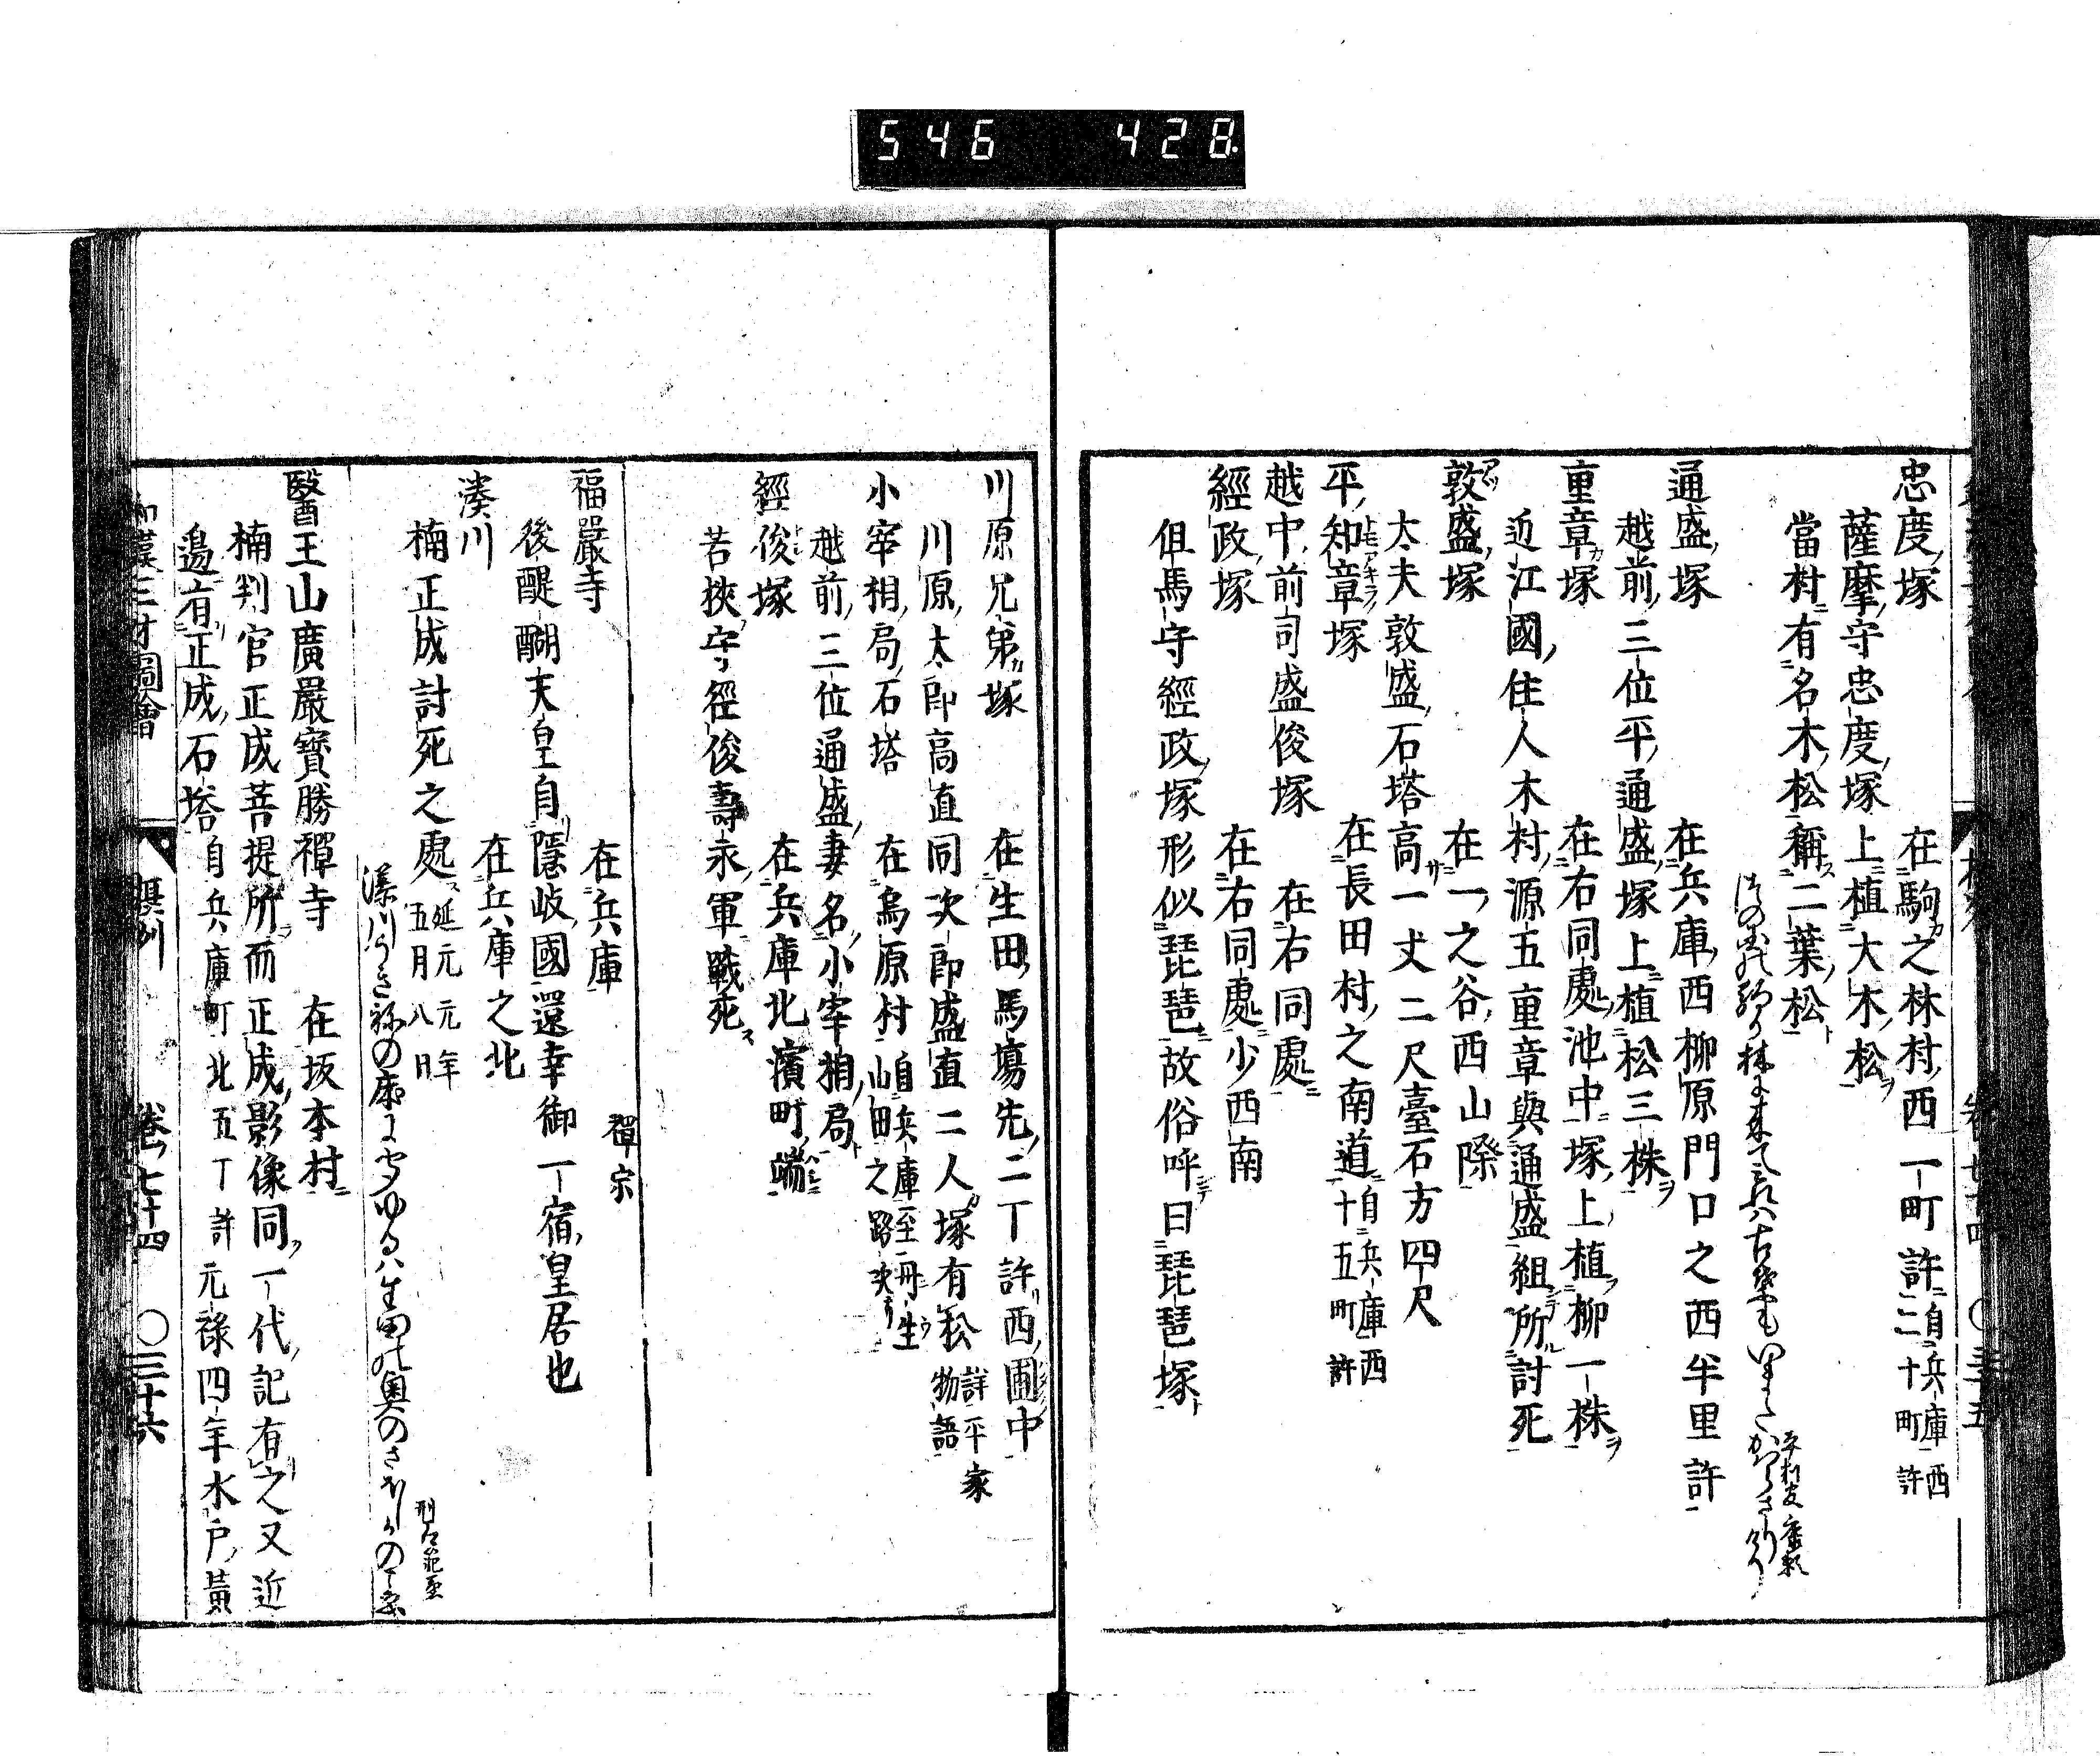 546 428
忠度塚 在駒之林村西一町許 自兵庫西二十町許
薩摩守忠度塚上植大木松
當村有名木松稱二葉松
通盛塚 在兵庫西柳原門口之西半里許
越前三位平通盛塚上植松三株
重章塚 在右同處池中塚上植柳一株
近江國住人木村源五重章與通盛組所討死
敦盛塚 在一之谷西山際
太夫敦盛石塔高一丈二尺臺石方四尺
平知章塚 在長田村之南道 自兵庫西十五町許
越中前司盛俊塚 在右同處
經政塚 在右同處少西南
但馬守經政塚形似琵琶故俗呼曰琵琶塚
川原兄弟塚 在生田馬塲先二丁許西圃中
川原太郎高直同次郎盛直二人塚有松 詳平家物語
小宰相局石塔 在烏原村 自兵庫至丹生山田之路次
越前三位通盛妻名小宰相局
經俊塚 在兵庫北濱町端
若狹守經俊壽永軍戰死
福嚴寺 在兵庫 禪宗
後醍醐天皇自隱岐國還幸御一宿皇居也
湊川 在兵庫之北
楠正成討死之處 延元元年五月八日
醫王山廣嚴寳勝禪寺 在坂本村
楠判官正成菩提所而正成影像同一代記有之又近
邊有正成石塔 自兵庫町北五丁許 元祿四年水戸黃
和漢三才圖會 攝州 卷七十四 〇三十六